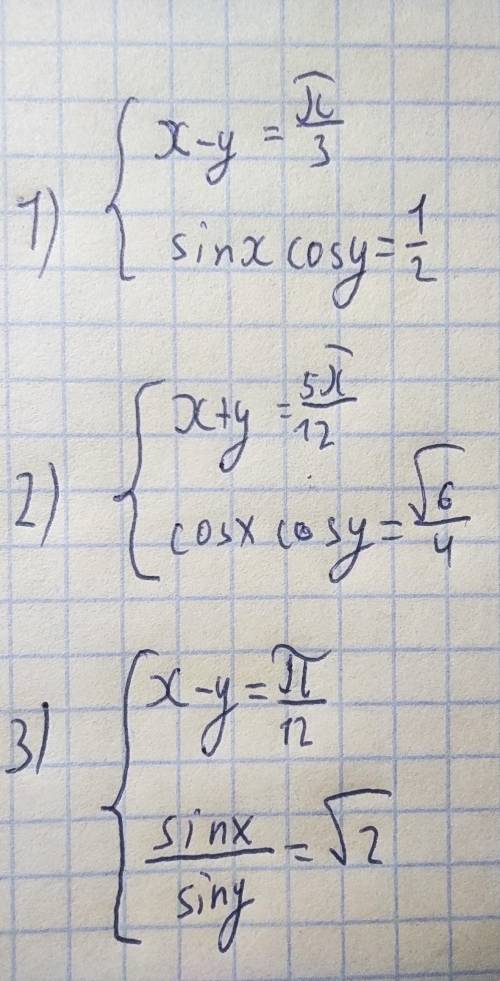 1) { x-y = π/3
sinx cosy = 1/2
2) { x+y = 5π/12
cosx cosy = √6/4
3) { x-y = π/12
sinx/siny = √2